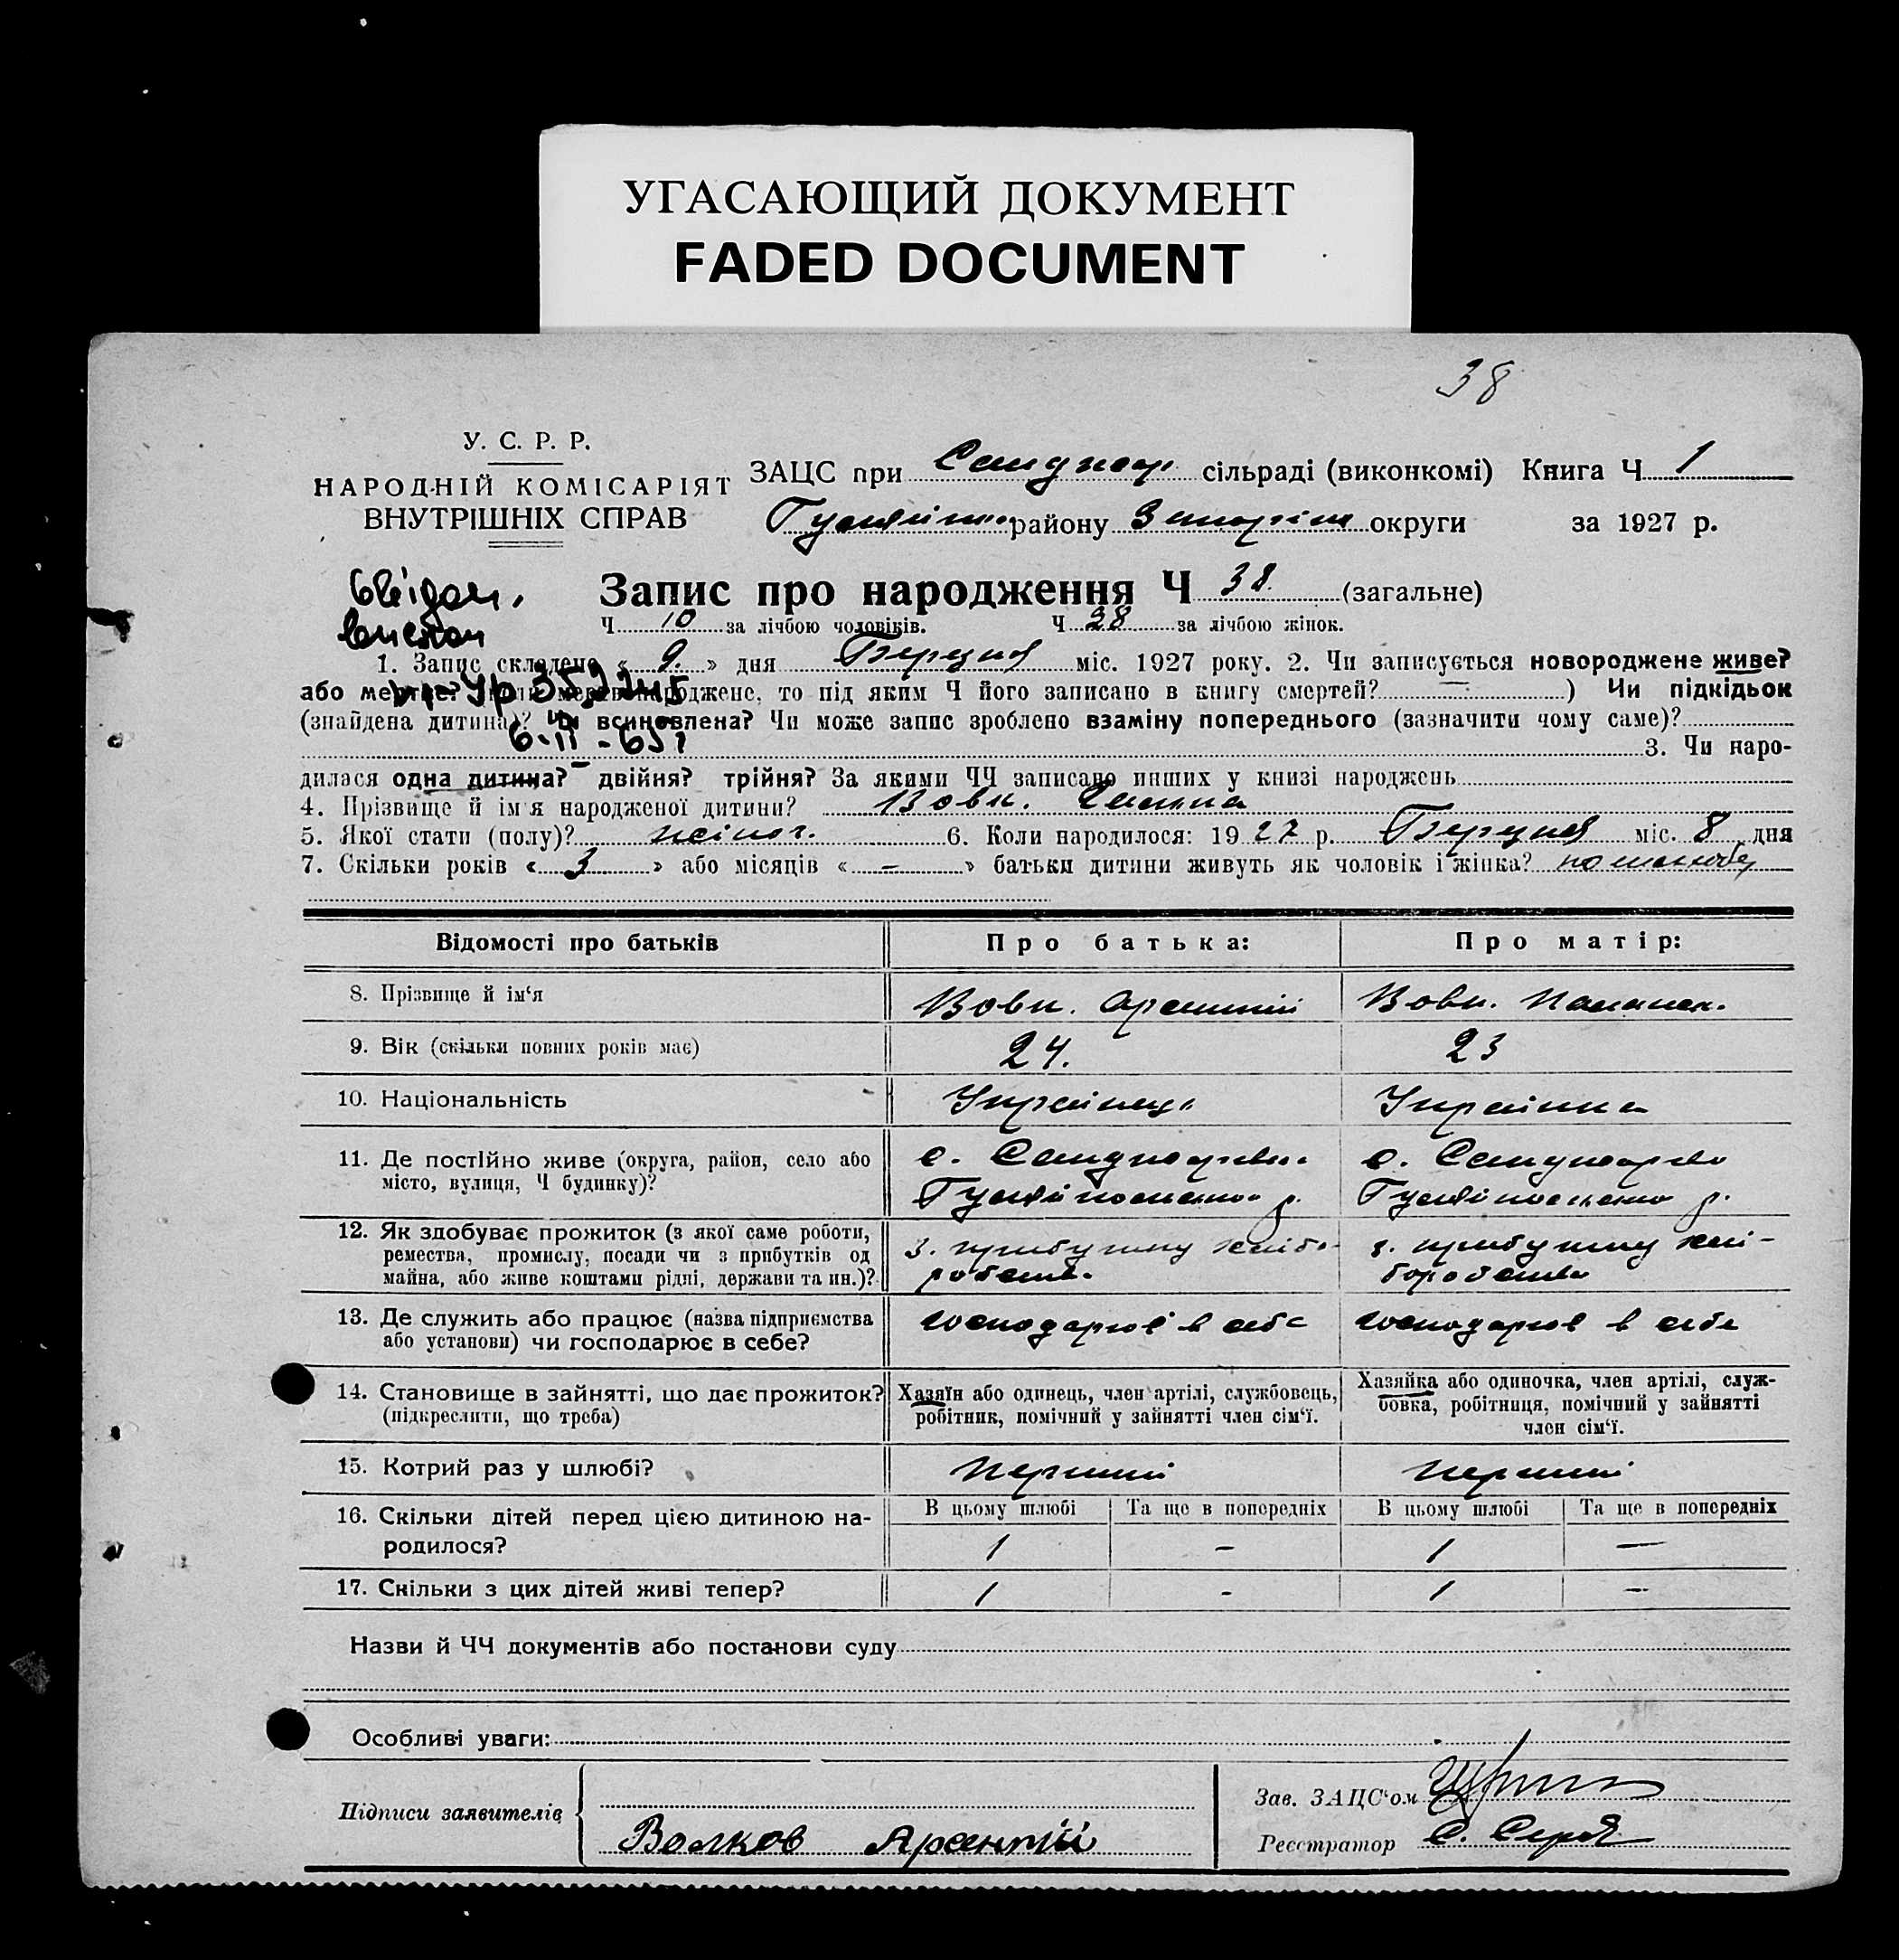 УГАСАЮЩИЙ ДОКУМЕНТ
FADED DOCUMENT
38
У. С. Р. Р.
НАРОДНІЙ КОМІСАРІЯТ
ВНУТРІШНІХ СПРАВ
ЗАЦС при сільраді (виконкомі) Книга Ч 1
району округи за 1927 р.
Запис про народження Ч 38 (загальне)
Ч 10 за лічбою чоловіків. Ч 28 за лічбою жінок.
1. Запис складено « 9. » дня Березня міс. 1927 року. 2. Чи записується новороджене живе?
або мертве? народжене, то під яким Ч його записано в книгу смертей? — ) Чи підкідьок
(знайдена дитина)? Чи всиновлена? Чи може запис зроблено взаміну попереднього (зазначити чому саме)?
6-II-65
3. Чи наро-
дилася одна дитина? двійня? трійня? За якими ЧЧ записано инших у книзі народжень
4. Прізвище й ім'я народженої дитини? Вовк.
5. Якої стати (полу)? жіноч. 6. Коли народилося: 1927 р. Березня міс. 8 дня
7. Скільки років « 3 » або місяців « – » батьки дитини живуть як чоловік і жінка?
Відомості про батьків Про батька: Про матір:
8. Прізвище й ім‘я Вовк. Арсентій Вовк.
9. Вік (скільки повних років має) 24. 23
10. Національність Українець Українка
11. Де постійно живе (округа, район, село або
місто, вулиця, Ч будинку)?
12. Як здобуває прожиток (з якої саме роботи, з. прибутку хлібо- з. прибутку хлі-
ремества, промислу, посади чи з прибутків од робства. боробства
майна, або живе коштами рідні, держави та ин.)?
13. Де служить або працює (назва підприємства господарює в себе господарює в себе
або установи) чи господарює в себе?
14. Становище в зайнятті, що дає прожиток? Хазяїн або одинець, член артілі, службовець, Хазяйка або одиночка, член артілі, служ-
(підкреслити, що треба) робітник, помічний у зайнятті член сім‘ї. бовка, робітниця, помічний у зайнятті
член сім‘ї.
15. Котрий раз у шлюбі? перший перший
16. Скільки дітей перед цією дитиною на- В цьому шлюбі Та ще в попередніх В цьому шлюбі Та ще в попередніх
родилося? 1 – 1 —
17. Скільки з цих дітей живі тепер? 1 - 1 —
Назви й ЧЧ документів або постанови суду
Особливі уваги:
Підписи заявителів
Волков Арсентій
Зав. ЗАЦС‘ом
Реєстратор